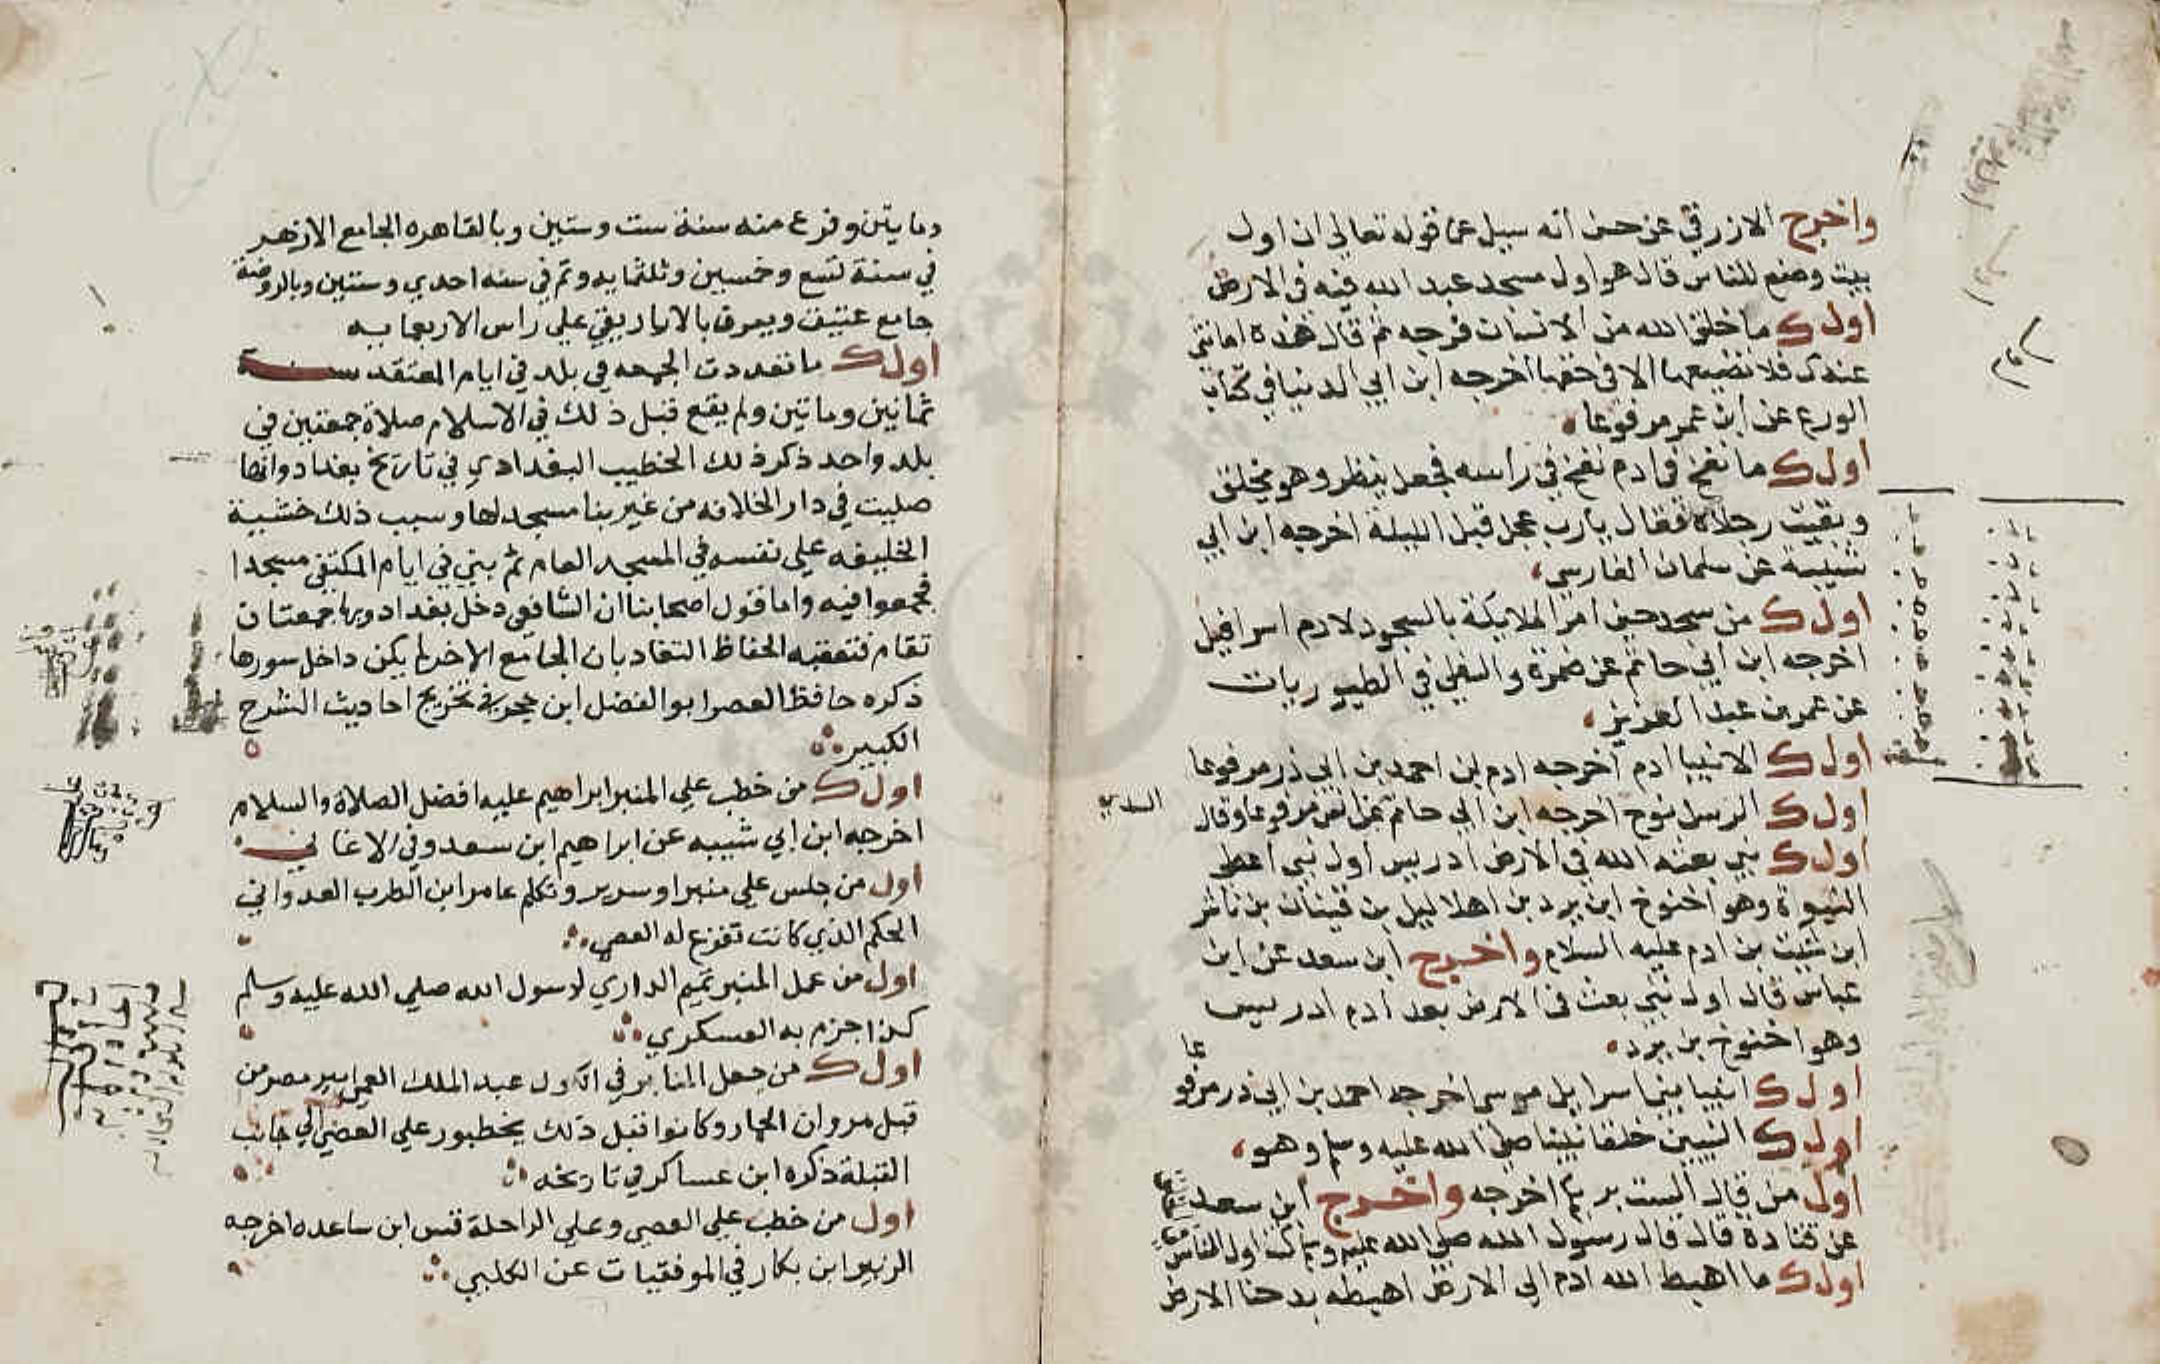 واخرج الازرقي عن حسن انه سيل عن قوله تعالي ان اول
بيت وضع للناس قال هو اول مسجد عبد الله فيه في الارض
اول ما خلق الله من الانسان فرجه ثم قال هذه امانتي
عندك فلا تضيعها الا في حقها اخرجه ابن ابي الدنيا في كتاب
الورع عن ابن عمر مرفوعا
اول ما نفخ في ادم نفخ في راسه فجعل ينظر وهو يخلق
وبقيت رجلاه فقال يا رب عجل قبل الليلة اخرجه ابن ابي
شيبة عن سلمان الفارسي
اول من سجد حين امر الملايكة بالسجود لادم اسرافيل
اخرجه ابن ابي حاتم عن ضمرة والسلفي في الطيوريات
عن عمر بن عبد العزيز
اول الانبيا ادم اخرجه ادم بن احمد بن ابي ذر مرفوعا
اول الرسل نوح اخرجه ابن ابي حاتم عن انس مرفوعا وقال السدي
اول نبي بعثه الله في الارض ادريس اول نبي اعطي
النبوة وهو اخنوخ ابن يرد بن اهلاليل بن قينان بن ناشر
ابن شيث بن ادم عليه السلام واخرج ابن سعد عن ابن
عباس قال اول نبي بعث في الارض بعد ادم ادريس
وهو اخنوخ بن يرد
اول انبيا بني اسرايل موسي اخرجه احمد بن ابي ذر مرفوعا
اول النبيين خلقا نبينا صلي الله عليه وسلم وهو
اول من قال الست بربكم اخرجه واخرج ابن سعد
عن قتادة قال قال رسول الله صلي الله عليه وسلم كنت اول الناس
اول ما اهبط الله ادم الي الارض اهبطه بدحنا الارض
ومايتين وفرغ منه سنة ست وستين وبالقاهره الجامع الازهر
في سنة تسع وخمسين وثلثمايه وتم في سنه احدي وستين وبالروضة
جامع عتيق ويعرف بالاباريقي علي راس الاربعمايه
اول ما تعددت الجمعه في بلد في ايام المعتقد سنة
ثمانين وماتين ولم يقع قبل ذلك في الاسلام صلاة جمعتين في
بلد واحد ذكر ذلك الخطيب البغدادي في تاريخ بغداد وانها
صليت في دار الخلافه من غير بنا مسجد لها وسبب ذلك خشية
الخليفه علي نفسه في المسجد العام ثم بني في ايام المكتفي مسجدا
فجمعوا فيه واما قول اصحابنا ان الشافعي دخل بغداد وبها جمعتان
تقام فتعقبه الحفاظ النقاد بان الجامع الاخر لم يكن داخل سورها
ذكره حافظ العصر ابو الفضل ابن حجر في تخريج احاديث الشرح
الكبير
اول من خطب علي المنبر ابراهيم عليه افضل الصلاة والسلام
اخرجه ابن ابي شيبه عن ابراهيم ابن سعد وفي الاغاني
اول من جلس علي منبر او سرير وتكلم عامر ابن الظرب العدواني
الحكم الذي كانت تقرع له العصي
اول من عمل المنبر تميم الداري لرسول الله صلي الله عليه وسلم
كذا جزم به العسكري
اول من جعل المنابر في الكول عبد الملك امير مصر من
قبل مروان الحمار وكانوا قبل ذلك يخطبون علي العصي الي جانب
القبلة ذكره ابن عساكر في تاريخه
اول من خطب علي العصي وعلي الراحلة قس ابن ساعده اخرجه
الزبير ابن بكار في الموفقيات عن الكلبي